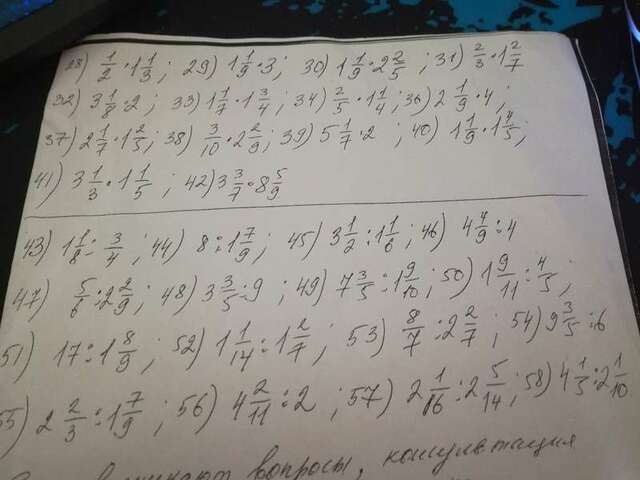 28) 1/2 · 1 1/3 ; 29) 1 1/9 · 3 ; 30) 1 1/9 · 2 2/5 ; 31) 2/3 · 1 2/7
32) 3 1/8 · 2 ; 33) 1 1/7 · 1 3/4 ; 34) 2/5 · 1 1/4 ; 36) 2 1/9 · 4 ;
37) 2 1/7 · 1 2/5 ; 38) 3/10 · 2 2/9 ; 39) 5 1/7 · 2 ; 40) 1 1/9 · 1 4/5 ;
41) 3 1/3 · 1 1/5 ; 42) 3 3/7 · 8 5/9
43) 1 1/8 : 3/4 ; 44) 8 : 1 7/9 ; 45) 3 1/2 : 1 1/6 ; 46) 4 4/9 : 4
47) 5/6 : 2 2/9 ; 48) 3 3/5 : 9 ; 49) 7 3/5 : 1 9/10 ; 50) 1 9/11 : 4/5 ;
51) 17 : 1 8/9 ; 52) 1 1/14 : 1 2/7 ; 53) 8/7 : 2 2/7 ; 54) 9 3/5 : 6
55) 2 2/3 : 1 7/9 ; 56) 4 2/11 : 2 ; 57) 2 1/16 : 2 5/14 ; 58) 4 1/5 : 2 1/10
вопросы, консультация